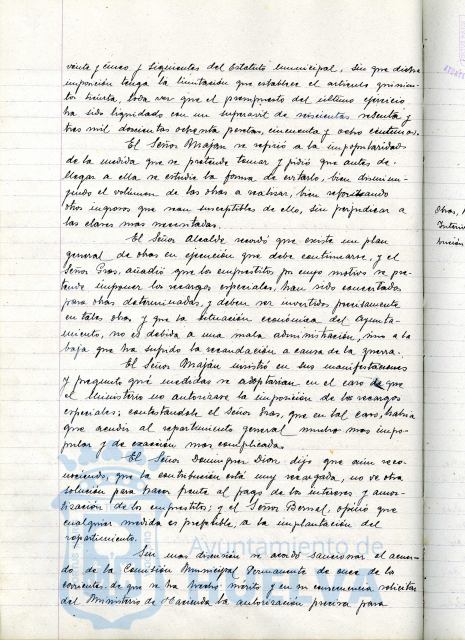 veinte y cinco y siguientes del Estatuto municipal, sin que dicha
imposición tenga la limitación que establece el artículo quinien-
tos treinta, toda vez que el presupuesto del último ejercicio
ha sido liquidado con un superavit de seiscientas sesenta y
tres mil doscientas ochenta pesetas, cincuenta y ocho centimos.
El Señor Maján se refirió a la impopularidad
de la medida que se pretende tomar y pidió que antes de
llegar a ella se estudie la forma de evitarlo, bien disminu-
yendo el volumen de las obras a realizar, bien reforzando
otros ingresos que sean susceptibles de ello, sin perjudicar a
las clases mas necesitadas.
El Señor Alcalde recordó que existe un plan
general de obras en ejecución que debe continuarse, y el
Señor Gros, añadió que los emprestitos por cuyo motivo se pre-
tende imponer los recargos especiales, han sido concertados
para obras determinadas, y deben ser invertidos precisamente
en tales obras y que la situación económica del Ayunta-
miento, no es debida a una mala administración, sino a la
baja que ha sufrido la recaudación a causa de la guerra.
El Señor Maján insistió en sus manifestaciones
y preguntó qué medidas se adoptarian en el caso de que
el Ministerio no autorizase la imposición de los recargos
especiales; contestandole el Señor Gros, que en tal caso, habria
que acudir al repartimiento general mucho mas impo-
pular y de exacción mas complicada.
El Señor Dominguez Dion, dijo que aun reco-
nociendo, que la contribución está muy recargada, no ve otra
solución para hacer frente al pago de los intereses y amor-
tización de los emprestitos; y el Señor Bernal, opinó que
cualquier medida es preferible, a la implantación del
repartimiento.
Sin mas discusión se acordó sancionar el acuer-
do de la Comisión Municipal Permanente de once de los
corrientes de que se ha hecho mérito y en su consecuencia solicitar
del Ministerio de Hacienda la autorización precisa para
Obras,
Interv
bución
Ayuntamiento de